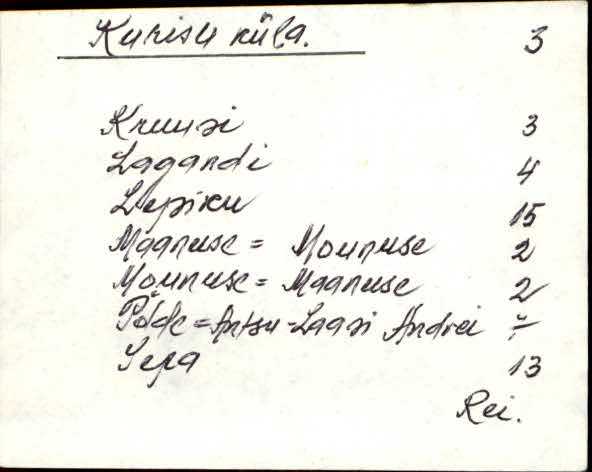 Kurisu küla. 3
Kruusi 3
Lagandi 4
Lepiku 15
Maanuse = Mounuse 2
Mounuse = Maanuse 2
Põlde = Antsu - Laasi Andrei 7
Sepa 13
Rei.